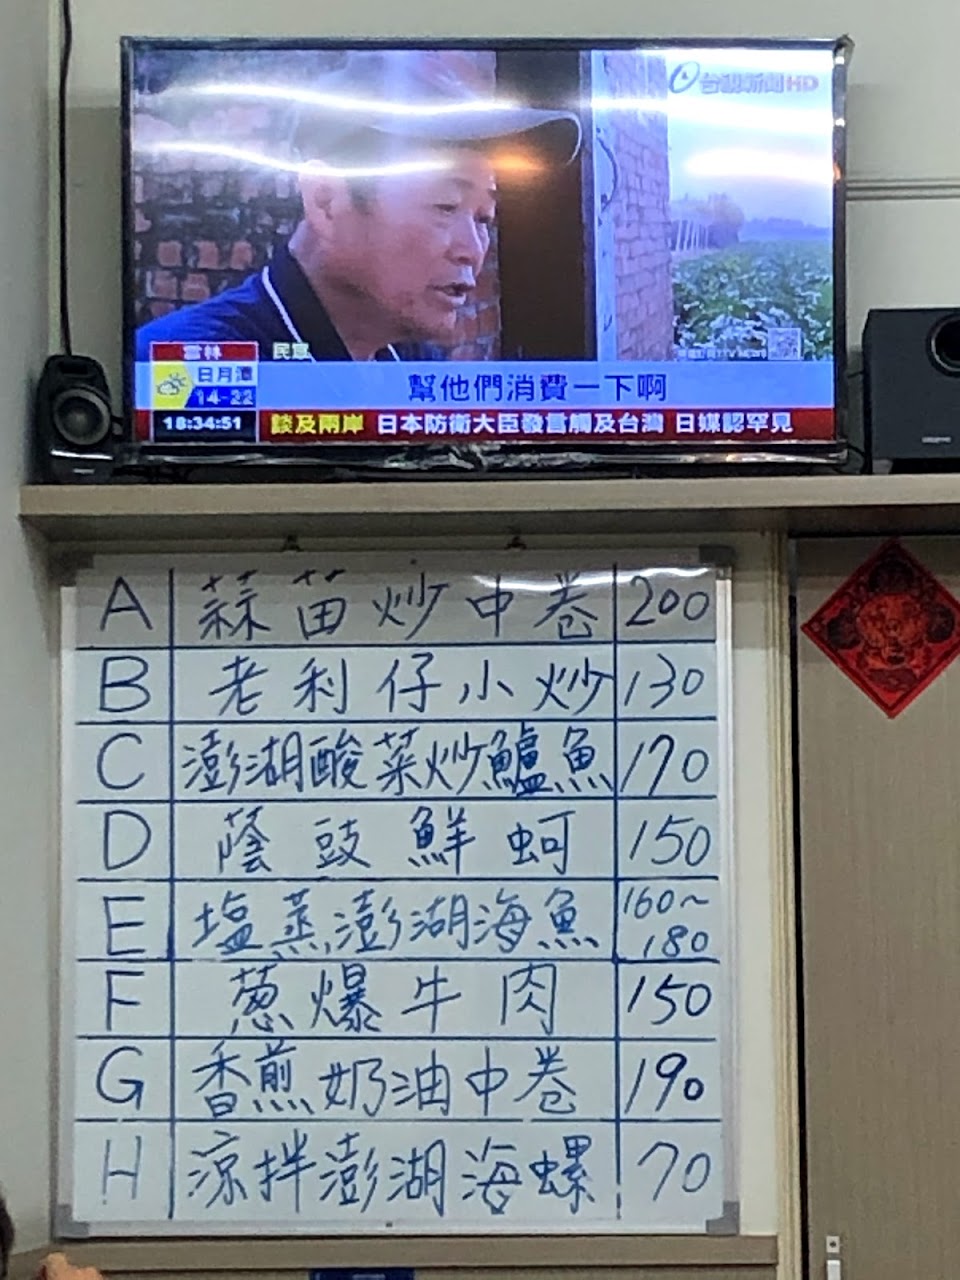 台視新聞HD
雲林
民眾
日月潭
14-22
幫他們消費一下啊
18:34:51
談及兩岸 日本防衛大臣發言觸及台灣 日媒認罕見
A 蒜苗炒中卷 200
B 老利仔小炒 130
C 澎湖酸菜炒鱸魚 170
D 蔭豉鮮蚵 150
E 塩蒸澎湖海魚 160~180
F 葱爆牛肉 150
G 香煎奶油中卷 190
H 涼拌澎湖海螺 70